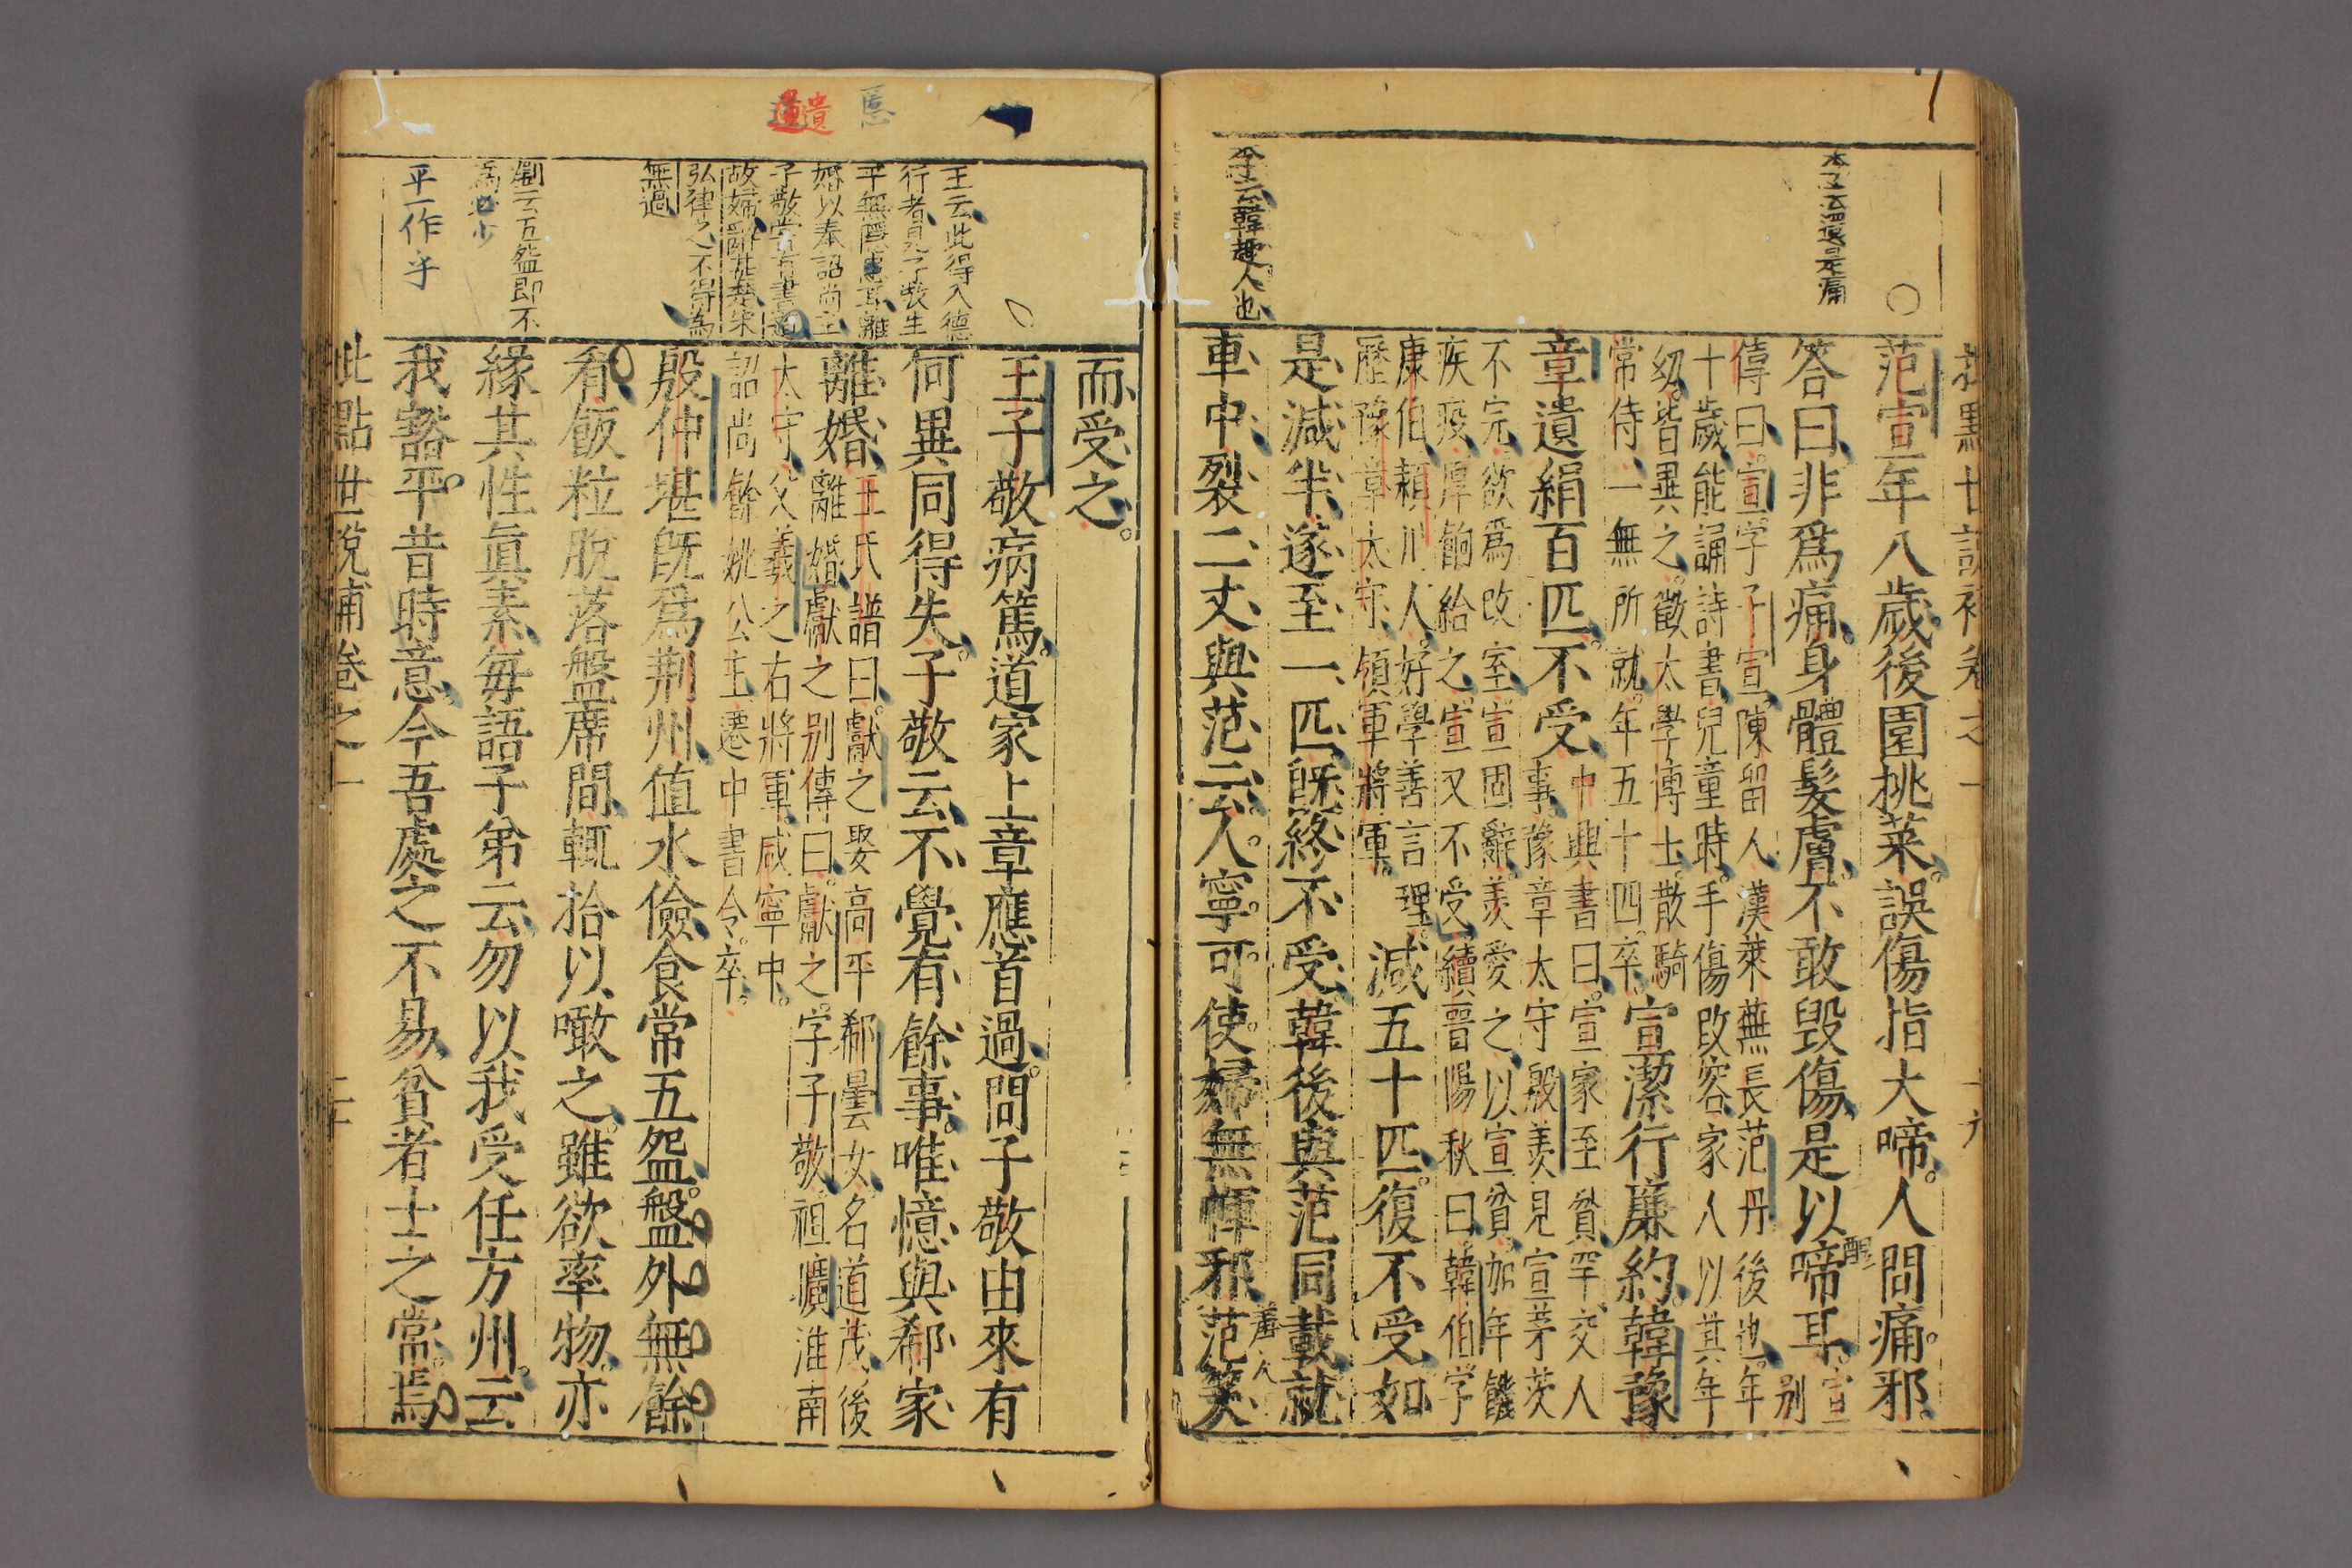 批點世說補卷之一
十九
本子云還是痛
范宣年八歲後園挑菜誤傷指大啼人問痛邪
答曰非爲痛身體髮膚不敢毀傷是以啼耳宣別
傳曰宣字子宣陳留人漢萊蕪長范丹後也年
十歲能誦詩書兒童時手傷改容家人以其年
幼皆異之徵太學博士散騎
常侍一無所就年五十四卒宣潔行廉約韓豫
章遺絹百匹不受中興書曰宣家至貧罕交人
事豫章太守殷羨見宣茅茨
不完欲爲改室宣固辭羨愛之以宣貧加年饑
疾疫厚餉給之宣又不受續晉陽秋曰韓伯字
康伯潁川人好學善言理
歷豫章太守領軍將軍減五十匹復不受如
是減半遂至一匹既終不受韓後與范同載就
李云韓趣人也
車中裂二丈與范云人寧可使婦無惲邪范笑
而受之
王云此得入德
行者見子敬生
平無隱慝耳離
婚以奉詔尚主
子敬嘗有書遺
故婦辭甚楚宋
弘律之不得爲
無過
王子敬病篤道家上章應首過問子敬由來有
何異同得失子敬云不覺有餘事唯憶與郗家
離婚王氏譜曰獻之娶高平郗曇女名道茂後
離婚獻之別傳曰獻之字子敬祖曠淮南
太守父羲之右將軍咸寧中
詔尚餘姚公主遷中書令卒
殷仲堪既爲荆州值水儉食常五盌盤外無餘
肴飯粒脫落盤席間輒拾以噉之雖欲率物亦
劉云五盌即不
爲少
緣其性眞素每語子弟云勿以我受任方州云
平一作乎
我豁平昔時意今吾處之不易貧者士之常焉
批點世說補卷之一
二十